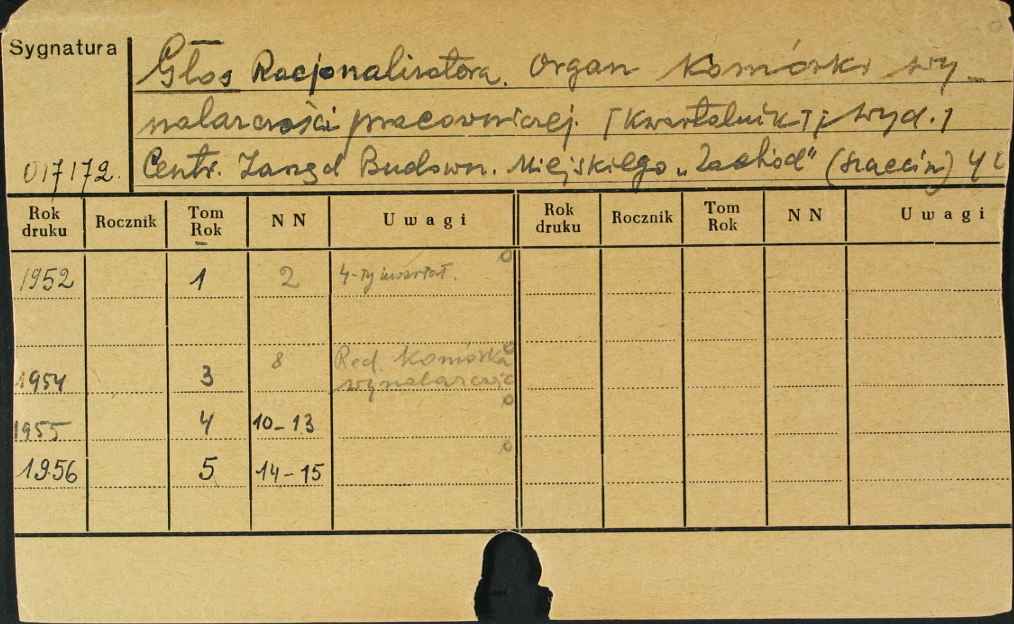 Sygnatura
Głos Racjonalizatora. Organ Komórki wy-
nalazczości pracowniczej. [Kwartalnik]; wyd.
Centr. Zarząd Budown. Miejskiego „Zachód" (Szczecin) 4°
017172.
Rok druku Rocznik Tom Rok N N Uwagi Rok druku Rocznik Tom Rok N N Uwagi
1952 1 2 4-ty kwartał.
1954 3 8 Red. Komórka
wynalazczoś
1955 4 10-13
1956 5 14-15